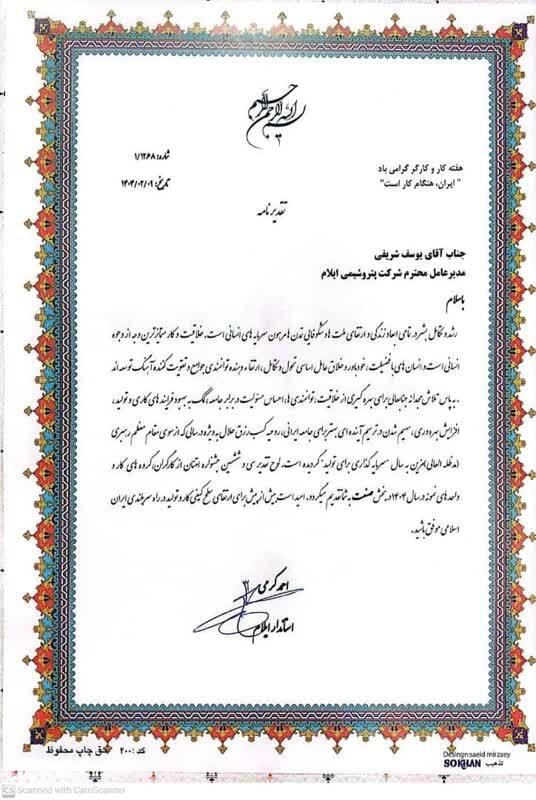 بسم الله الرحمن الرحیم
شماره: ۱/۱۲۶۸
هفته کار و کارگر گرامی باد
تاریخ: ۱۴۰۴/۰۲/۰۹
"ایران، هنگام کار است"
تقدیرنامه
جناب آقای یوسف شریفی
مدیرعامل محترم شرکت پتروشیمی ایلام
باسلام
رشد و تکامل بشر در تمامی ابعاد زندگی و ارتقای ملت ها و شکوفائی تمدن ها مرهون سرمایه های انسانی است. خلاقیت و کار متمایزترین وجه از وجوه
انسانی است و انسان های با فضیلت، خودباور و خلاق عامل اساسی تحول و تکامل، ارتقاء دهنده توانمندی جوامع و تقویت کننده آهنگ توسعه اند
. به پاس تلاش مجدانه جنابعالی برای بهره گیری از خلاقیت، توانمندی ها، احساس مسئولیت در برابر جامعه، کمک به بهبود فرایندهای کاری و تولید،
افزایش بهره وری، سهیم شدن در ترسیم آینده ای بهتر برای جامعه ایرانی، روحیه کسب رزق حلال به ویژه در سالی که از سوی مقام معظم رهبری
(مدظله العالی) مزین به سال "سرمایه گذاری برای تولید" گردیده است. لوح تقدیر سی و ششمین جشنواره امتنان از کارگران گروه های کار و
واحدهای نمونه در سال ۱۴۰۴ در بخش صنعت به شما تقدیم میگردد. امید است بیش از پیش برای ارتقای سطح کیفی کار و تولید در راه سربلندی ایران
اسلامی موفق باشید.
احمد کرمی
استاندار ایلام
کد: ۲۰۰ حق چاپ محفوظ
Desingn:saeid mirzaey
تذهیب SOKHAN
CS Scanned with CamScanner